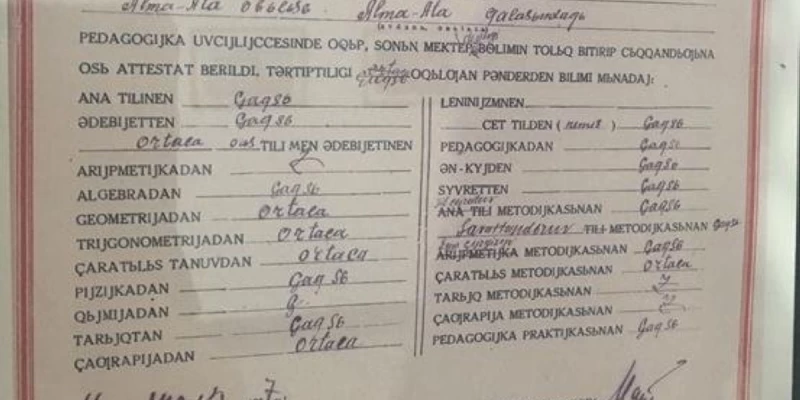 Alma-Ata oblьsь Alma-Ata qalasьndaƣь
PEDAGOGIJKA UVCIJLIJCCESINDE OQЬP, SONЬN MEKTEP BɵLIMIN TOLЬQ BITIRIP CЬQQANDЬƢЬNA
OSЬ ATTESTAT BERILDI, TƏRTIPTILIGI OQЬLƢAN PƏNDERDEN BILIMI MЬNADAJ:
ANA TILINEN Çaqsь
ƏDEBIJETTEN Çaqsь
Ortaca orьs TILI MEN ƏDEBIJETINEN
ARIJPMETIJKADAN
ALGEBRADAN Çaqsь
GEOMETRIJADAN Ortaca
TRIJGONOMETRIJADAN Ortaca
ÇARATЬLЬS TANUVDAN Ortaca
PIJZIJKADAN Çaqsь
QЬJMIJADAN
TARЬJQTAN Çaqsь
ÇAƢЬRAPIJADAN Ortaca
LENINIJZMNEN
CET TILDEN (nemis) Çaqsь
PEDAGOGIJKADAN Çaqsь
ƏN-KYJDEN Çaqsь
SYVRETTEN Çaqsь
ANA TILI METODIJKASЬNAN Çaqsь
TILI METODIJKASЬNAN Çaqsь
ARIJPMETIJKA METODIJKASЬNAN Çaqsь
ÇARATЬLЬS METODIJKASЬNAN Ortaca
TARЬJQ METODIJKASЬNAN
ÇAƢЬRAPIJA METODIJKASЬNAN
PEDAGOGIJKA PRAKTIJKASЬNAN Çaqsь